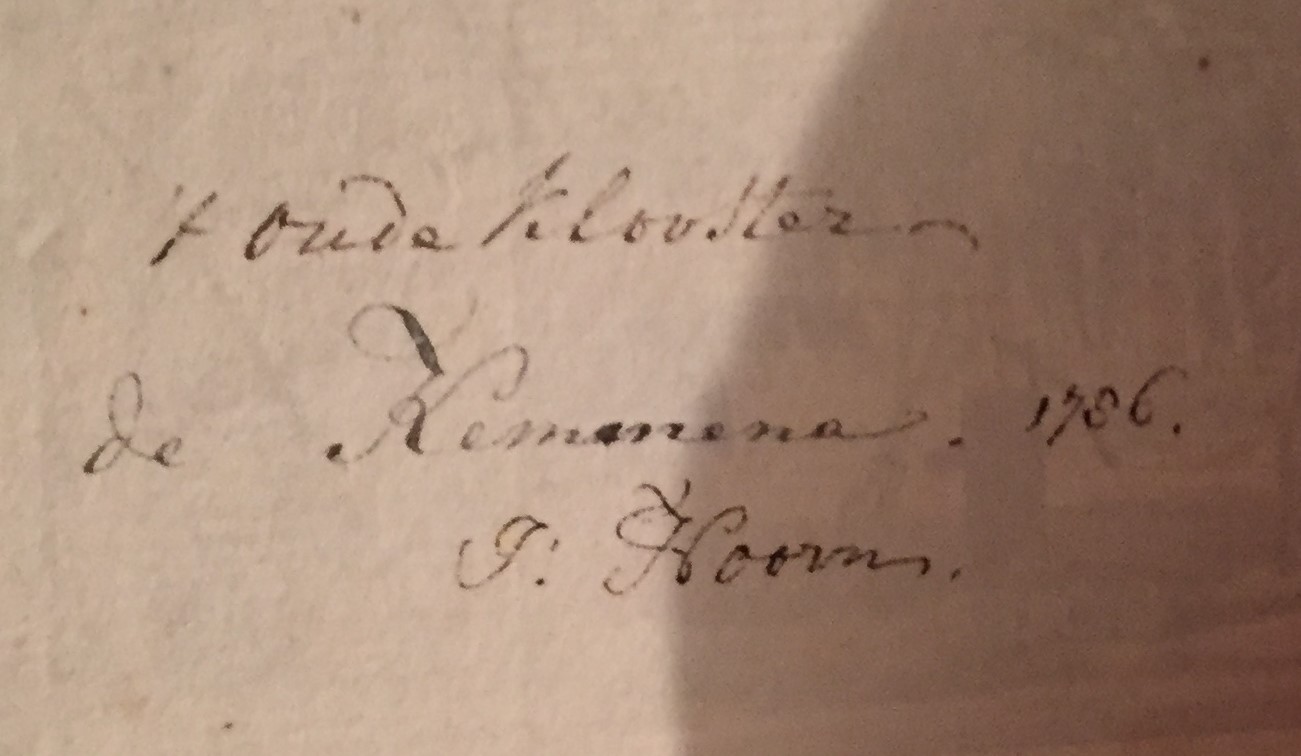 't oude Klooster
de Kemmena. 1786.
J: Hoorn.